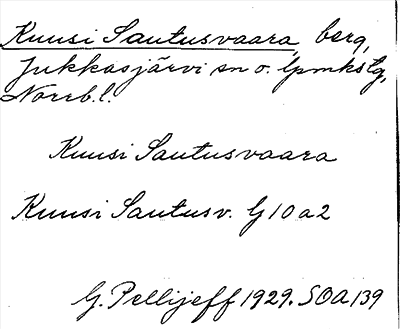 Kuusi Sautusvaara, berg,
Jukkasjärvi sn o. lpmkstg,
Norrb.l.
Kuusi Sautusvaara
Kuusi Sautusv. G 10 a 2
G. Pellijeff 1929. SOA 139